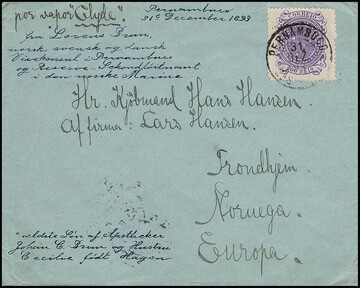 por vapor "Clyde".
Pernambuco
31te December 1893
fra Lorens Brun,
norsk svensk og dansk
Viceconsul i Pernambuco
og Reserve Sekondlöitnant
i den norske Marine
PERNAMBUCO
Hr. Kjöbmand Hans Hansen.
af firma: Lars Hansen.
Trondhjem
Noruega.
Europa.
ældste Søn af Apotheker
Johan C. Brun og Hustru
Cecilie, født Hagen